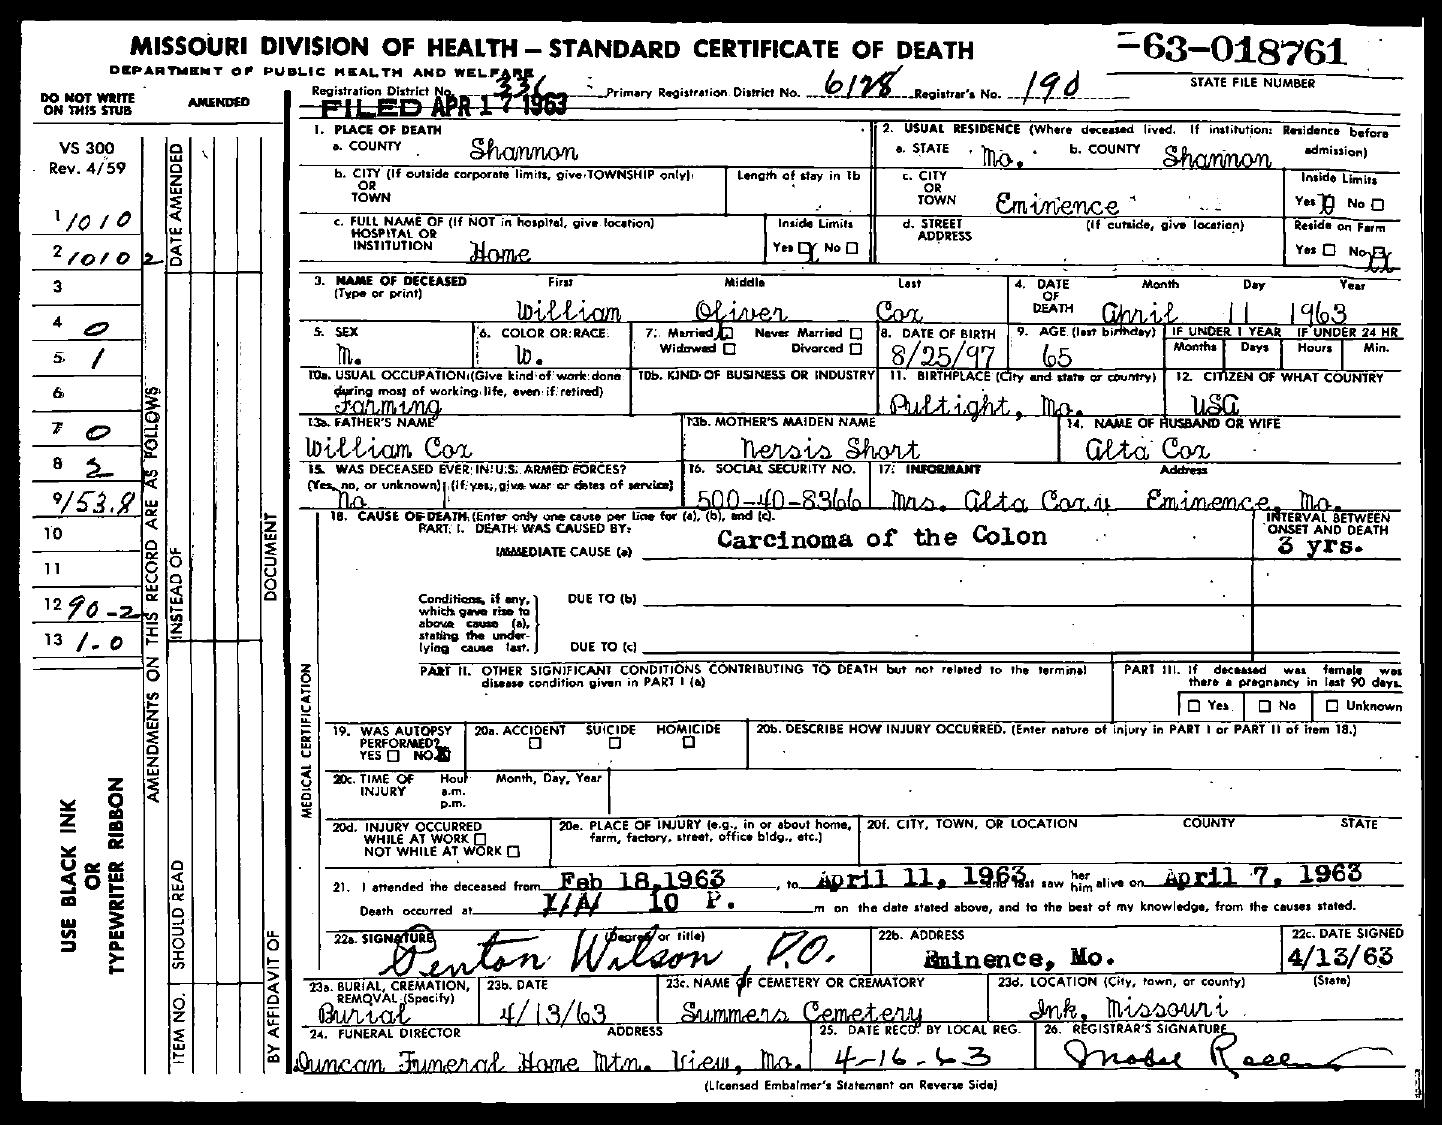 MISSOURI DIVISION OF HEALTH — STANDARD CERTIFICATE OF DEATH
-63-018761
DEPARTMENT OF PUBLIC HEALTH AND WELFARE
STATE FILE NUMBER
Registration District No. 336 Primary Registration District No. 6128 Registrar's No. 190
FILED APR 17 1963
DO NOT WRITE ON THIS STUB
AMENDED
VS 300
Rev. 4/59
1 1010
2 1010 2
3
4 0
5 1
6
7 0
8 2
9 153.8
10
11
12 90-2
13 1-0
USE BLACK INK
OR
TYPEWRITER RIBBON
AMENDMENTS ON THIS RECORD ARE AS FOLLOWS
DATE AMENDED
INSTEAD OF
SHOULD READ
ITEM NO.
DOCUMENT
BY AFFIDAVIT OF
MEDICAL CERTIFICATION
1. PLACE OF DEATH
a. COUNTY Shannon
2. USUAL RESIDENCE (Where deceased lived. If institution: Residence before admission)
a. STATE Mo. b. COUNTY Shannon
b. CITY (If outside corporate limits, give TOWNSHIP only) OR TOWN
Length of stay in 1b
c. CITY OR TOWN Eminence
Inside Limits
Yes No
c. FULL NAME OF (If NOT in hospital, give location) HOSPITAL OR INSTITUTION Home
Inside Limits
Yes No
d. STREET ADDRESS (If outside, give location)
Reside on Farm
Yes No
3. NAME OF DECEASED (Type or print)
First Middle Last
William Oliver Cox
4. DATE OF DEATH
Month Day Year
April 11 1963
5. SEX
M.
6. COLOR OR RACE
W.
7. Married Never Married
Widowed Divorced
8. DATE OF BIRTH
8/25/97
9. AGE (last birthday)
65
IF UNDER 1 YEAR
Months Days
IF UNDER 24 HR
Hours Min.
10a. USUAL OCCUPATION (Give kind of work done during most of working life, even if retired)
Farming
10b. KIND OF BUSINESS OR INDUSTRY
11. BIRTHPLACE (City and state or country)
Pultight, Mo.
12. CITIZEN OF WHAT COUNTRY
USA
13a. FATHER'S NAME
William Cox
13b. MOTHER'S MAIDEN NAME
Nersis Short
14. NAME OF HUSBAND OR WIFE
Alta Cox
15. WAS DECEASED EVER IN U.S. ARMED FORCES?
(Yes, no, or unknown) (If yes, give war or dates of service)
No
16. SOCIAL SECURITY NO.
500-40-8366
17. INFORMANT Address
Mrs. Alta Cox Eminence, Mo.
18. CAUSE OF DEATH (Enter only one cause per line for (a), (b), and (c).
PART I. DEATH WAS CAUSED BY:
IMMEDIATE CAUSE (a) Carcinoma of the Colon
INTERVAL BETWEEN ONSET AND DEATH
3 yrs.
Conditions, if any, which gave rise to above cause (a), stating the underlying cause last.
DUE TO (b)
DUE TO (c)
PART II. OTHER SIGNIFICANT CONDITIONS CONTRIBUTING TO DEATH but not related to the terminal disease condition given in PART I (a)
PART III. If deceased was female was there a pregnancy in last 90 days.
Yes No Unknown
19. WAS AUTOPSY PERFORMED?
YES NO
20a. ACCIDENT SUICIDE HOMICIDE
20b. DESCRIBE HOW INJURY OCCURRED. (Enter nature of injury in PART I or PART II of item 18.)
20c. TIME OF INJURY
Hour a.m. p.m.
Month, Day, Year
20d. INJURY OCCURRED
WHILE AT WORK
NOT WHILE AT WORK
20e. PLACE OF INJURY (e.g., in or about home, farm, factory, street, office bldg., etc.)
20f. CITY, TOWN, OR LOCATION COUNTY STATE
21. I attended the deceased from Feb 18, 1963, to April 11, 1963 and last saw her him alive on April 7, 1963
Death occurred at 10 P. m on the date stated above, and to the best of my knowledge, from the causes stated.
22a. SIGNATURE (Degree or title)
Denton Wilson D.O.
22b. ADDRESS
Eminence, Mo.
22c. DATE SIGNED
4/13/63
23a. BURIAL, CREMATION, REMOVAL (Specify)
Burial
23b. DATE
4/13/63
23c. NAME OF CEMETERY OR CREMATORY
Summers Cemetery
23d. LOCATION (City, town, or county) (State)
Ink, Missouri
24. FUNERAL DIRECTOR ADDRESS
Duncan Funeral Home Mtn. View, Mo.
25. DATE RECD. BY LOCAL REG.
4-16-63
26. REGISTRAR'S SIGNATURE
Mabel
(Licensed Embalmer's Statement on Reverse Side)